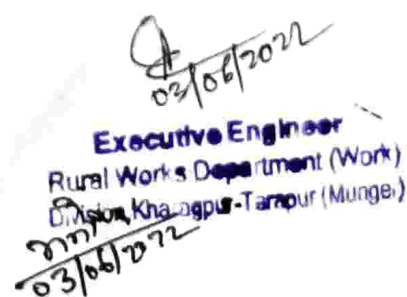 03/06/2022
Executive Engineer
Rural Works Department (Work)
Division, Kharagpur-Tarapur (Munger)
03/06/2022